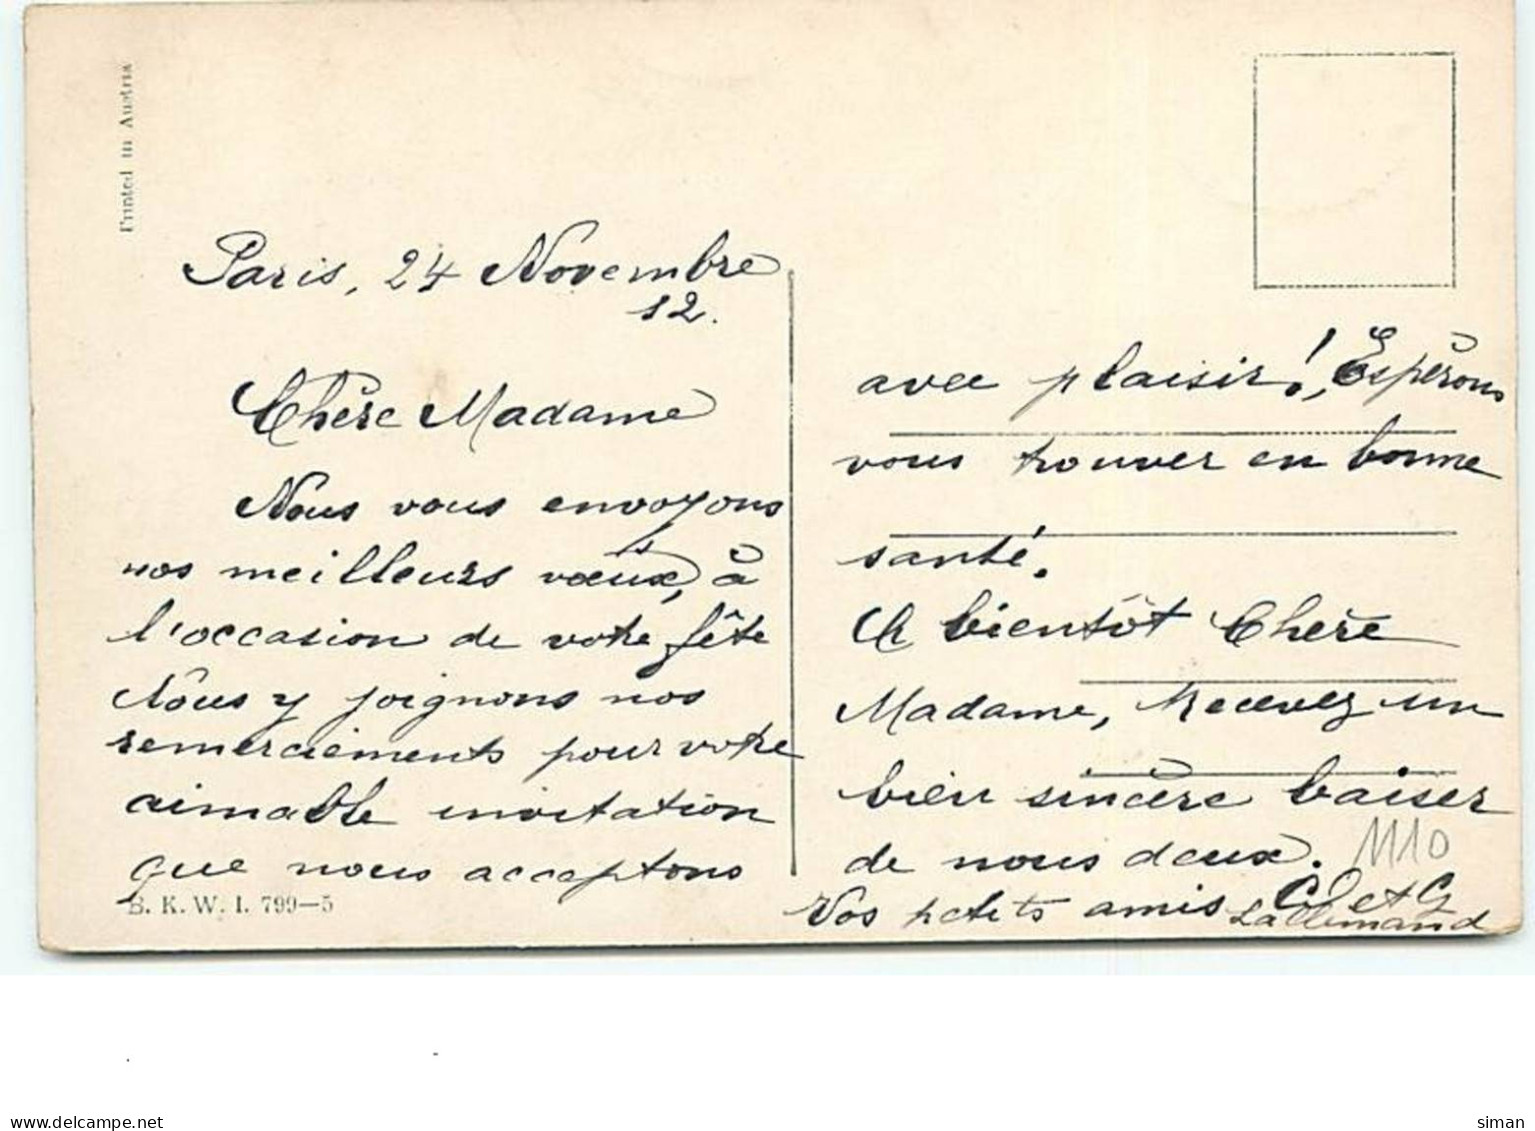 Printed in Austria
Paris, 24 Novembre
12.
Chère Madame
Nous vous envoyons
nos meilleurs vœux, à
l'occasion de votre fête
Nous y joignons nos
remerciements pour votre
aimable invitation
que nous acceptons
B. K. W. I. 799—5
avec plaisir! Espérons
vous trouver en bonne
santé.
A bientôt Chère
Madame, Recevez un
bien sincère baiser
de nous deux.
1110
Vos petits amis et G
Lallemand
delcampe.net
siman